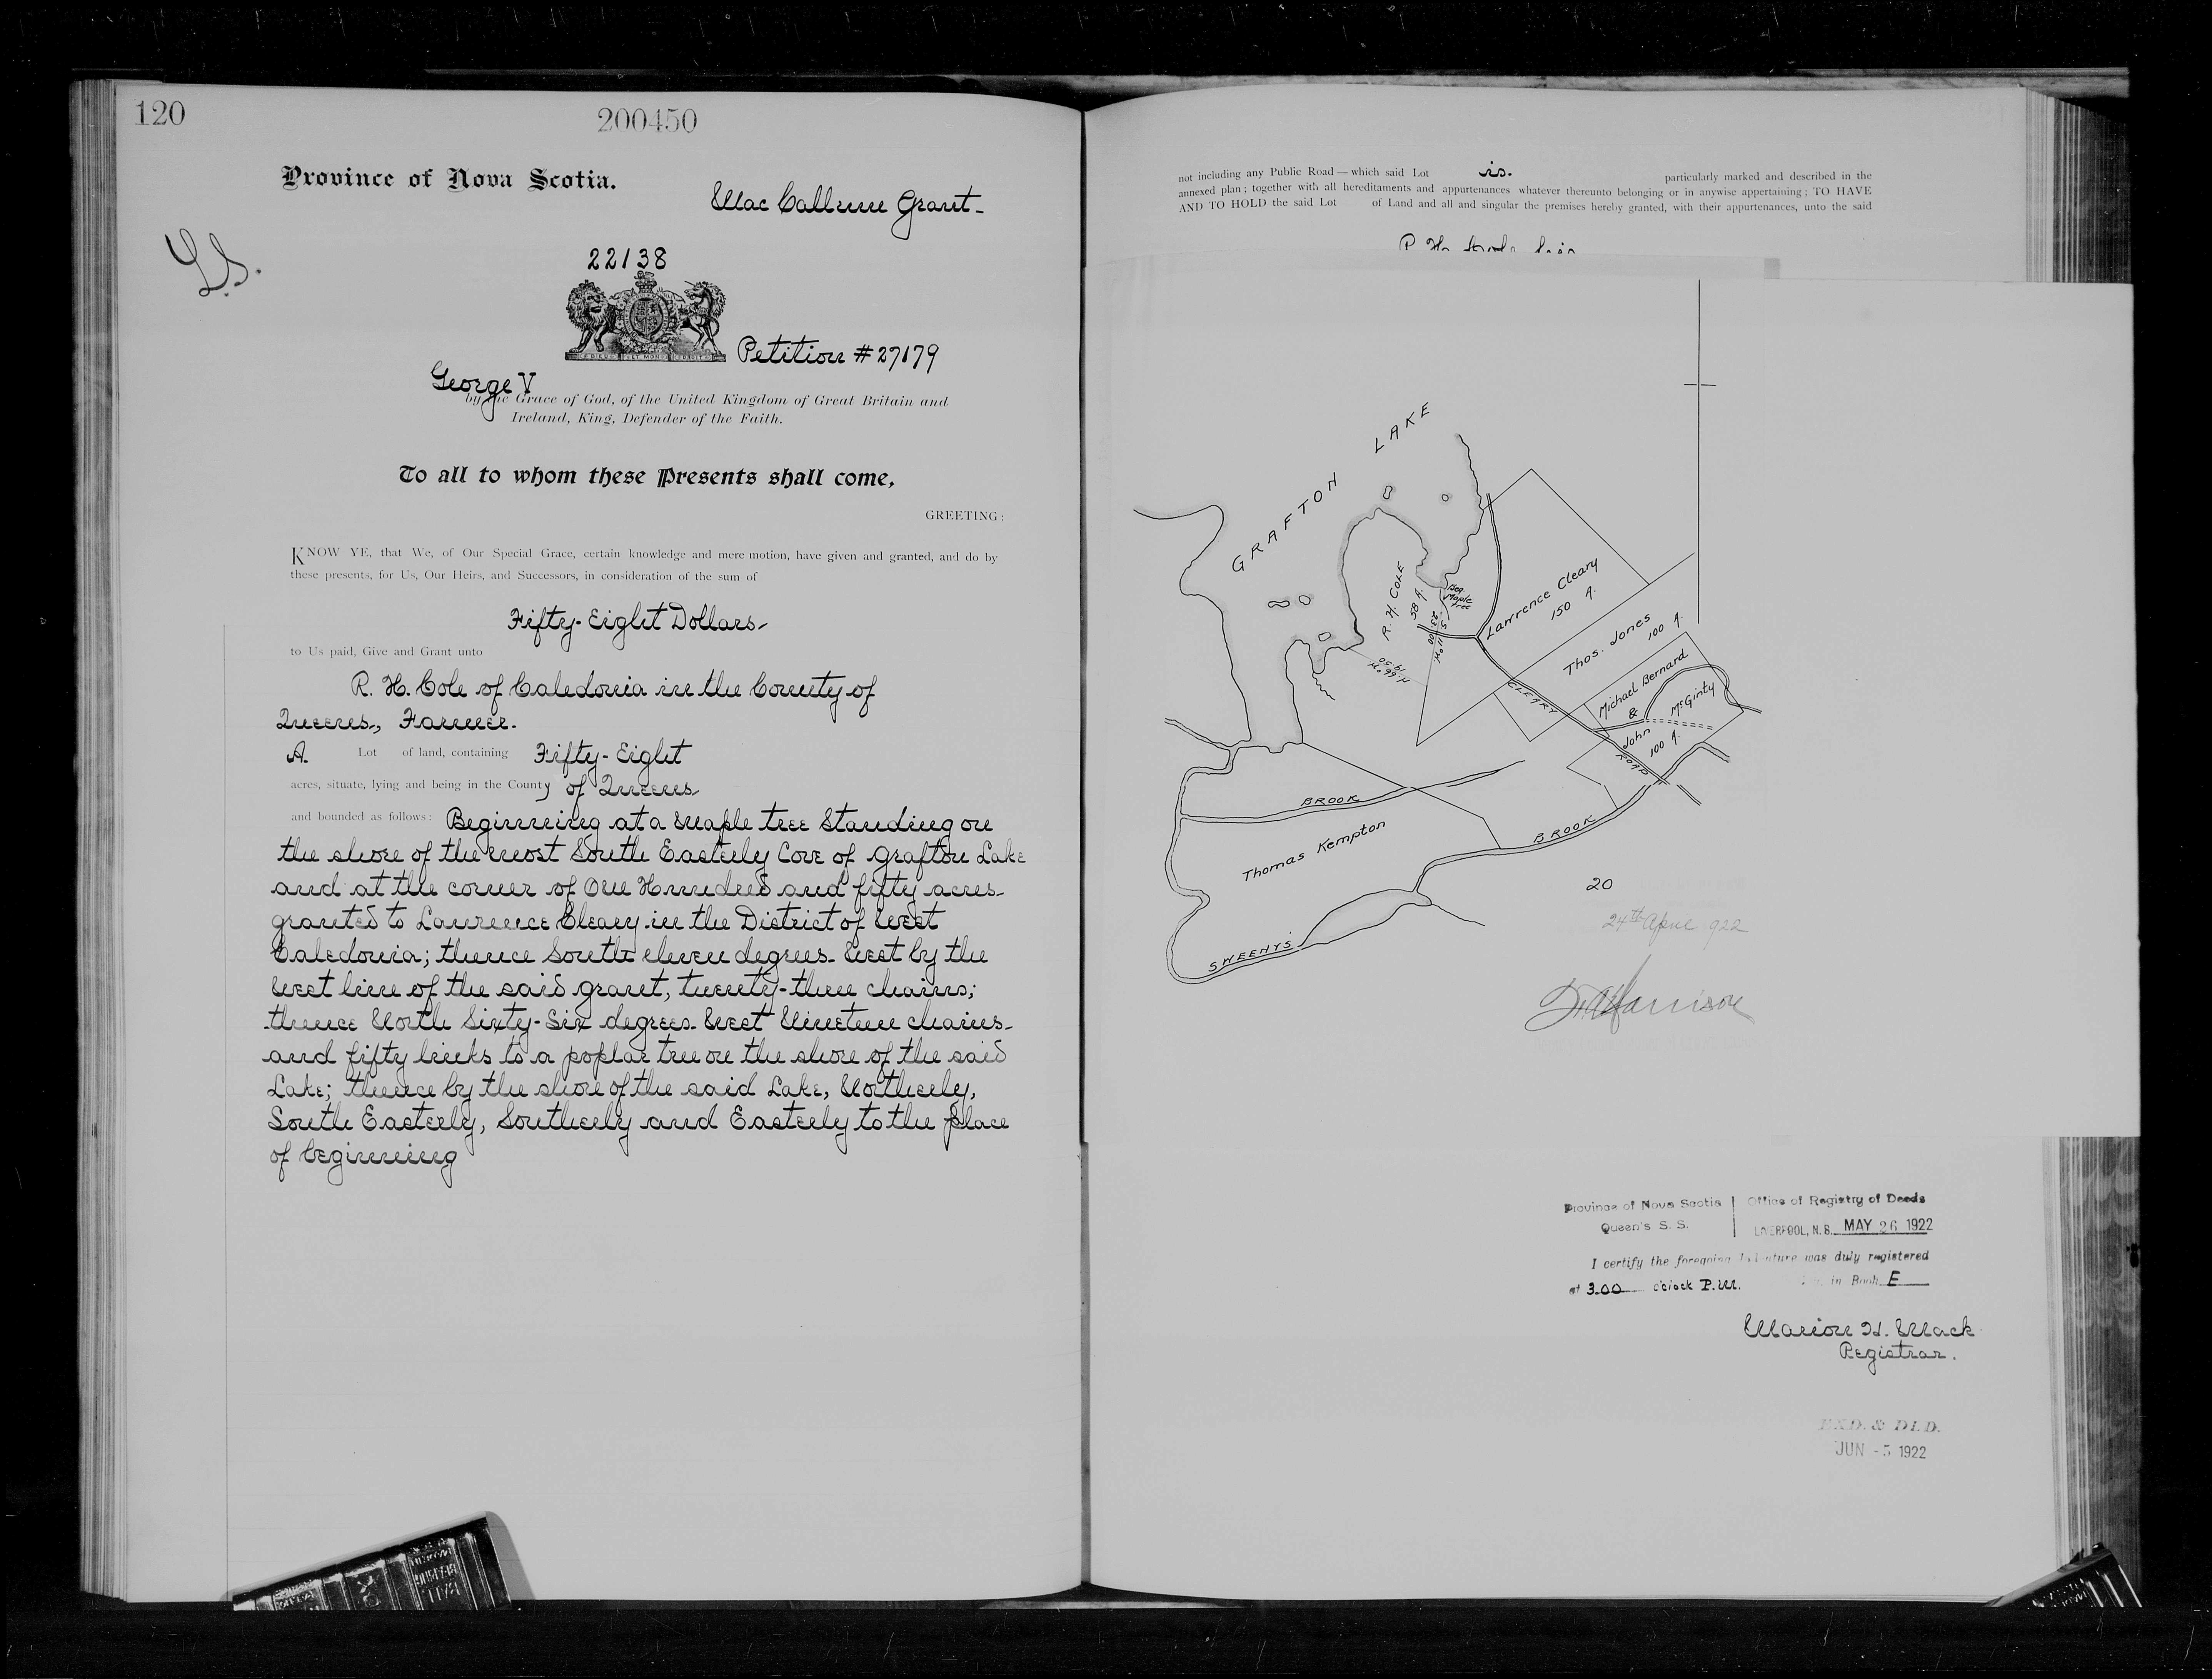 120
200450
Province of Nova Scotia.
MacCallum Grant-
L.S.
22138
Petition #27179
George V
by the Grace of God, of the United Kingdom of Great Britain and
Ireland, King, Defender of the Faith.
To all to whom these Presents shall come,
GREETING:
KNOW YE, that We, of Our Special Grace, certain knowledge and mere motion, have given and granted, and do by
these presents, for Us, Our Heirs, and Successors, in consideration of the sum of
Fifty-Eight Dollars-
to Us paid, Give and Grant unto
R. H. Cole of Caledonia in the County of
Queens, Farmer.
A Lot of land, containing Fifty-Eight
acres, situate, lying and being in the County of Queens
and bounded as follows: Beginning at a Maple tree Standing on
the shore of the most South Easterly Cove of Grafton Lake
and at the corner of One Hundred and fifty acres
granted to Lawrence Cleary in the District of West
Caledonia; thence South eleven degrees West by the
West line of the said grant, twenty-three chains;
thence North Sixty-Six degrees West Nineteen chains
and fifty links to a poplar tree on the shore of the said
Lake; thence by the shore of the said Lake, Northerly,
South Easterly, Southerly and Easterly to the place
of beginning
not including any Public Road — which said Lot is. particularly marked and described in the
annexed plan; together with all hereditaments and appurtenances whatever thereunto belonging or in anywise appertaining; TO HAVE
AND TO HOLD the said Lot of Land and all and singular the premises hereby granted, with their appurtenances, unto the said
GRAFTON LAKE
R. H. COLE
58 A.
Beg.
Maple
tree
S. 11° W.
23.00
N. 66° W.
19.50
Lawrence Cleary
150 A.
Thos. Jones
100 A.
Michael Bernard
&
McGinty
John
100 A.
CLEARY
ROAD
BROOK
Thomas Kempton
BROOK
SWEENY'S
20
24th April 922
Province of Nova Scotia
Queen's S. S.
Office of Registry of Deeds
LIVERPOOL, N. S. MAY 26 1922
I certify the foregoing Indenture was duly registered
at 3.00 o'clock P.M. in Book E
Marion H. Mack
Registrar.
JUN -5 1922